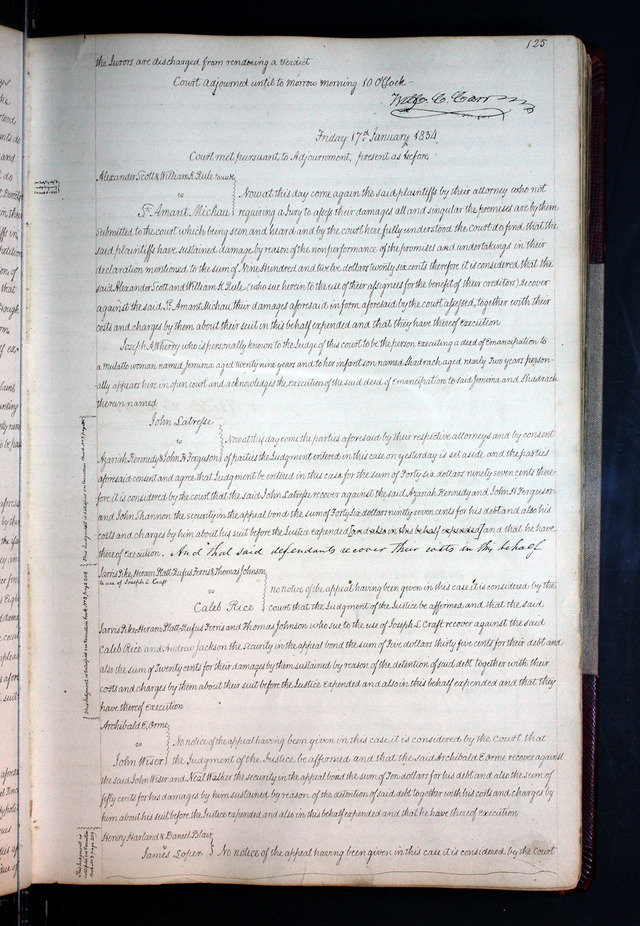 125
the Jurors are discharged from rendering a verdict
Court adjourned until to morrow morning 10 O'Clock
Friday 17th January 1834
Court met pursuant to Adjournment, present as before
Alexander Scott & William K Rule
vs
St Amant Michau
Now at this day come again the said plaintiffs by their attorney who not
requiring a Jury to assess their damages all and singular the premises are by them
submitted to the court which being seen and heard and by the court here fully understood the court do find that the
said plaintiffs have sustained damage by reason of the nonperformance of the promises and undertakings in their
declaration mentioned to the sum of Nine Hundred and twelve dollars twenty six cents therefore it is considered that the
said Alexander Scott and William K Rule, (who sue herein to the use of their assignees for the benefit of their creditors) recover
against the said St Amant Michau, their damages aforesaid in form aforesaid by the court assessed, together with their
costs and charges by them about their suit in this behalf expended and that they have thereof execution
Joseph A Wherry who is personally known to the Judge of this court to be the person executing a deed of Emancipation to
a mulatto woman named Jemima aged twenty nine years and to her infant son named Shadrach aged nearly Two years person-
ally appears here in open court and acknowledges the execution of the said deed of emancipation to said Jemima and Shadrach
therein named
John Latresse
vs
Azariah Kennedy & John H Ferguson
Now at this day come the parties aforesaid by their respective attorneys and by consent
of parties the Judgment entered in this case on yesterday is set aside, and the parties
aforesaid consent and agree that Judgment be entered in this case for the sum of Forty six dollars ninety seven cents there-
fore it is considered by the court that the said John Latresse recover against the said Azariah Kennedy and John H Ferguson
and John Shannon the security in the appeal bond the sum of Forty six dollars ninety seven cents for his debt and also his
costs and charges by him about his suit before the Justice expended and also in this behalf expended and that he have
thereof execution. And that said defendants recover their costs in this behalf
Jarvis Pike, Hiram Platt, Rufus Ferris & Thomas Johnson
to use of Joseph L Craft
vs
Caleb Rice
No notice of the appeal having been given in this case it is considered by the
court that the Judgment of the Justice be affirmed and that the said
Jarvis Pike, Hiram Platt, Rufus Ferris and Thomas Johnson who sue to the use of Joseph L Craft recover against the said
Caleb Rice and Andrew Jackson the security in the appeal bond the sum of Five dollars thirty five cents for their debt and
also the sum of Twenty cents for their damages by them sustained by reason of the detention of said debt together with their
costs and charges by them about their suit before the Justice expended and also in this behalf expended and that they
have thereof execution
Archibald E. Orme
vs
John Wiser
No notice of the appeal having been given in this case, it is considered by the Court that
the Judgment of the Justice be affirmed and that the said Archibald E Orme recover against
the said John Wiser and Neal Walker the security in the appeal bond the sum of Ten dollars for his debt and also the sum of
fifty cents for his damages by him sustained by reason of the detention of said debt together with his costs and charges by
him about his suit before the Justice expended and also in this behalf expended and that he have thereof execution
Henry Harland & Daniel Blair
James Loper
No notice of the appeal having been given in this case it is considered by the Court